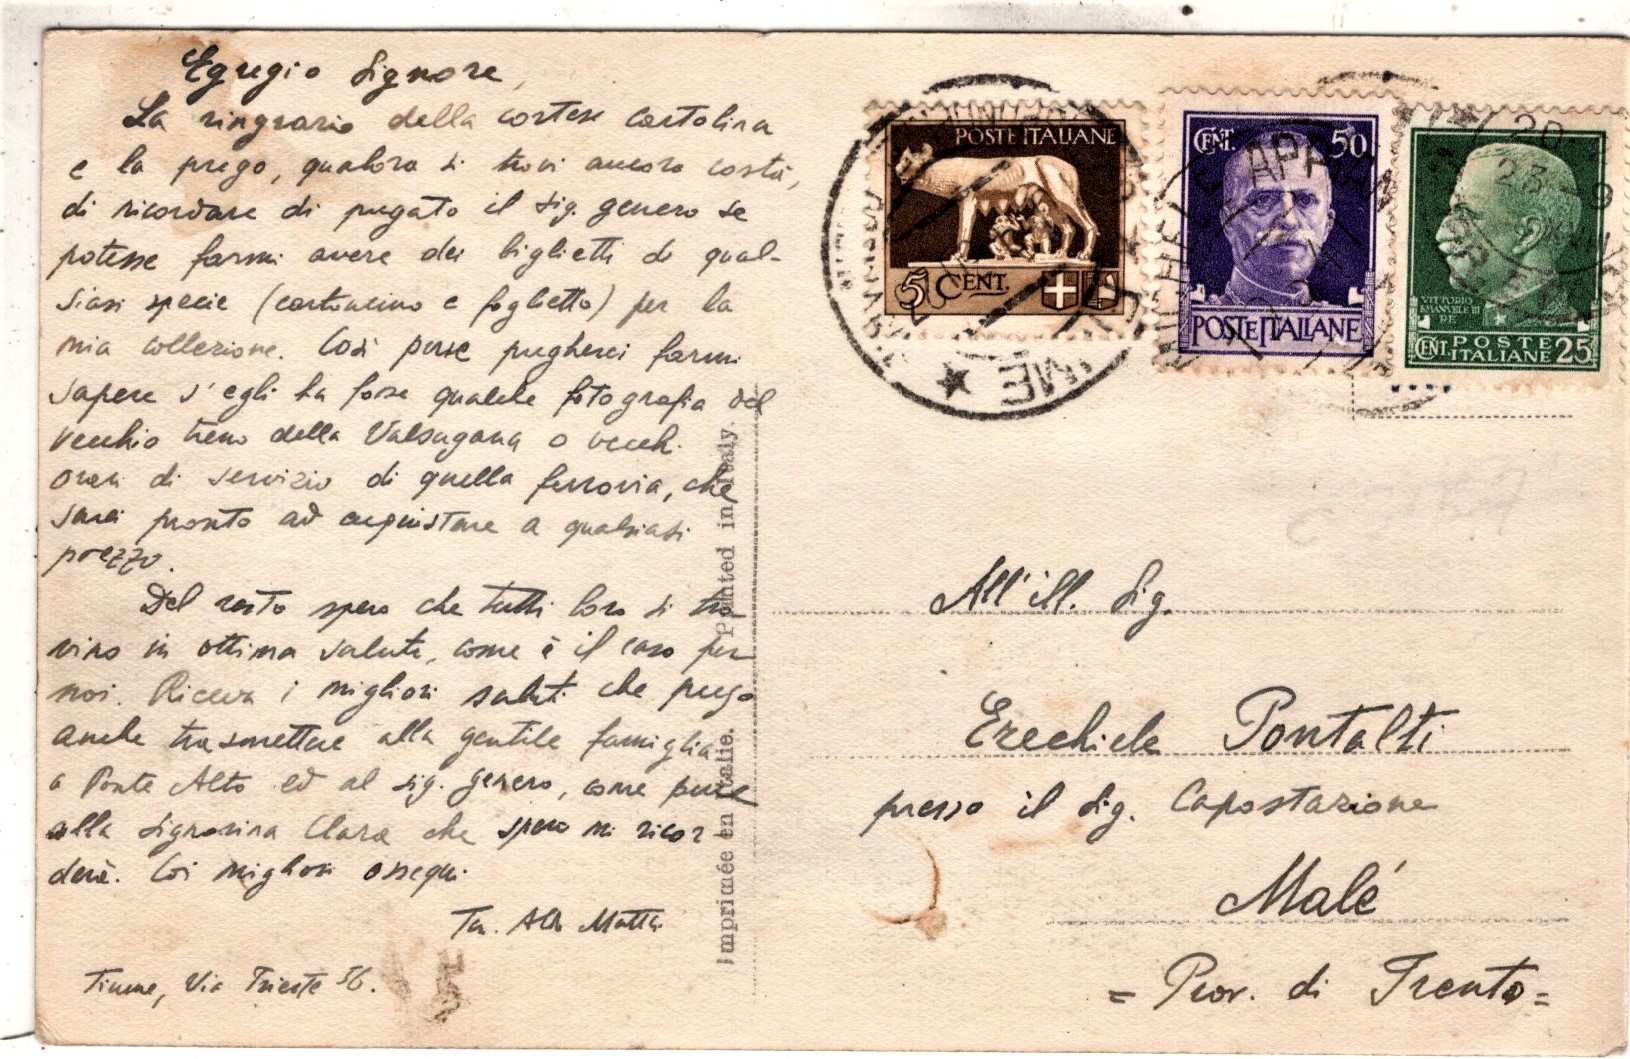 Egregio Signore,
La ringrazio della cortese cartolina
e la prego, qualora si trovi ancora costà,
di ricordare di pregato il sig. genero se
potesse farmi avere dei biglietti di qual-
siasi specie (cartoncino e foglietto) per la
mia collezione. Così pure pregherei farmi
sapere s'egli ha forse qualche fotografia del
vecchio treno della Valsugana o vecch.
orari di servizio di quella ferrovia, che
sarei pronto ad acquistare a qualsiasi
prezzo.
Del resto spero che tutti loro si tro
vino in ottima salute, come è il caso per
noi. Riceva i migliori saluti che prego
anche trasmettere alla gentile famiglia
a Ponte Alto ed al sig. genero, come pure
alla signorina Clara che spero mi ricor
derà. Coi migliori ossequi
Aldo Mattei
Fiume, Via Trieste 56.
Imprimée en Italie. Printed in Italy.
POSTE ITALIANE
5 CENT.
CENT. 50
POSTE ITALIANE
VITTORIO
EMANVELE III
RE
CENT. POSTE
ITALIANE 25
All'ill. Sig.
Ezechiele Pontalti
presso il sig. Capostazione
Malé
= Prov. di Trento =